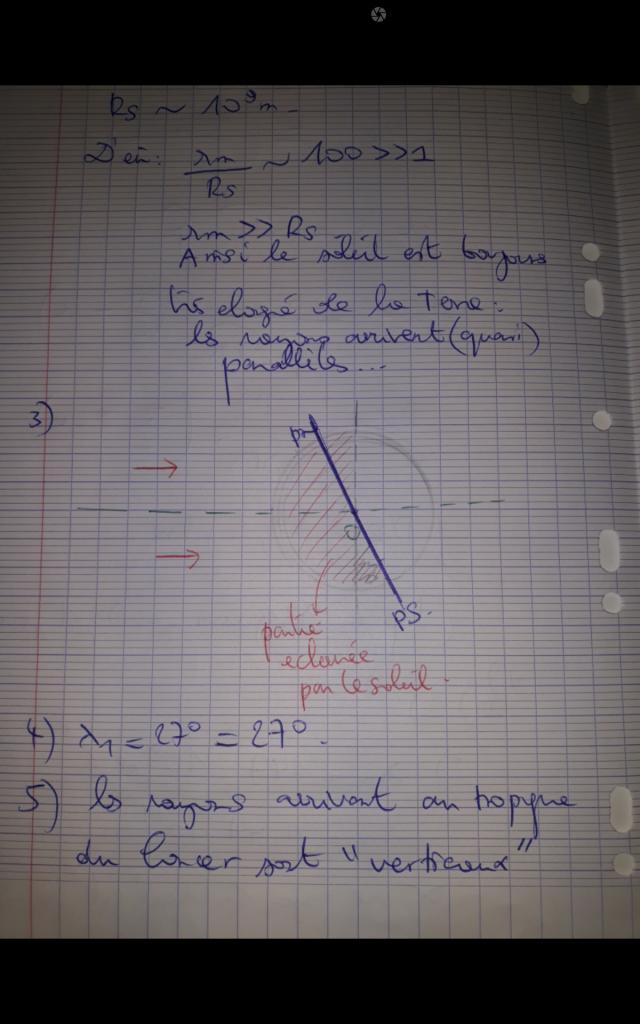 Rs ~ 10⁹ m.
D'où: rm/Rs ~ 100 >> 1
rm >> Rs
Ainsi le soleil est toujours
très éloigné de la Terre:
les rayons arrivent (quasi)
parallèles...
3)
pN
O
pS.
partie
éclairée
par le soleil.
4) λ₁ = 27° = 27°.
5) les rayons arrivant au tropique
du Cancer sont "verticaux"